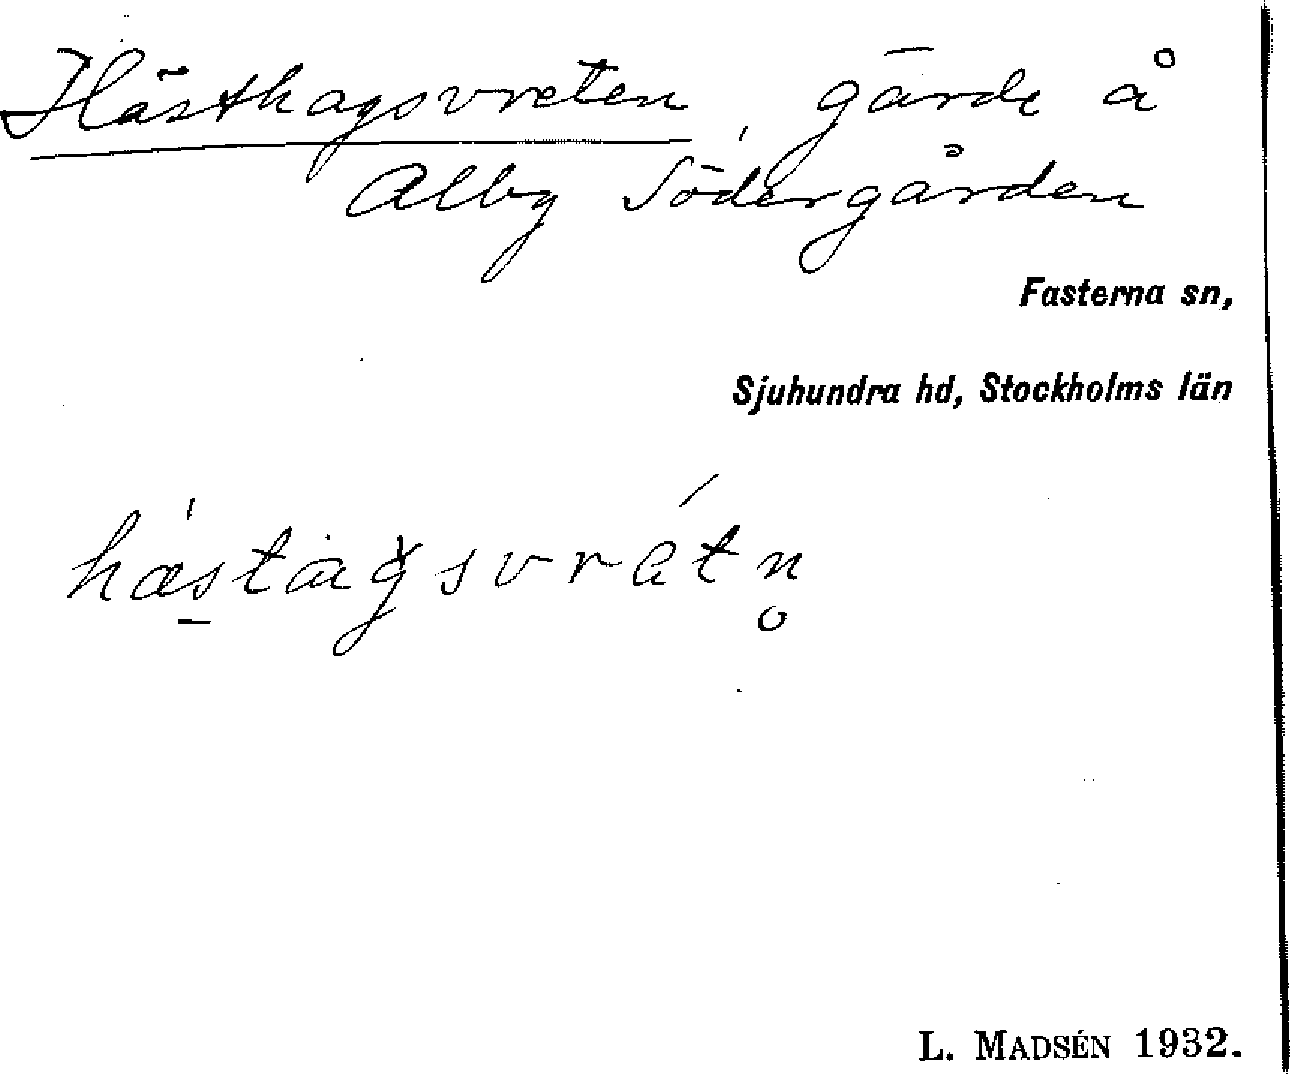 Hästhagsvreten, gärde å
Alby Södergården
Fasterna sn,
Sjuhundra hd, Stockholms län
L. MADSÉN 1932.